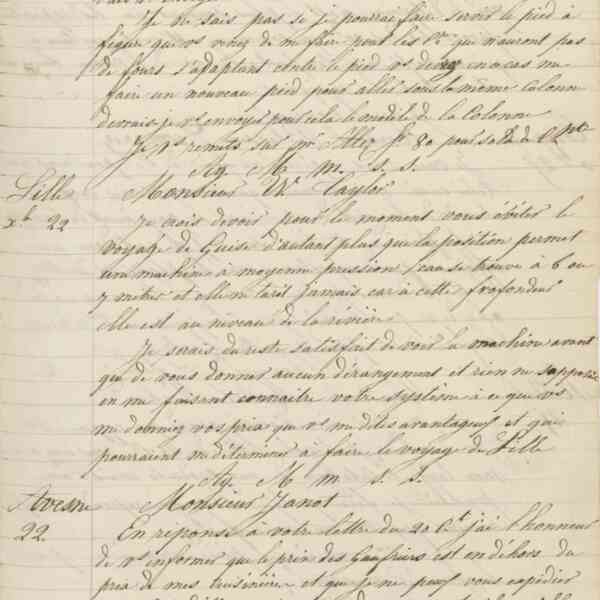 Je ne sais pas si je pourrai faire servir le pied à
figure que vs venez de m faire pour les Cx qui n'auront pas
de fours s'adaptant entre le pied vs devez en ce cas me
faire un nouveau pied pour aller sous la même Colonne
devrais-je vs envoyer pour cela le modèle de la Colonne
Je vs remets sur Mr Allez f 80 pour solde de Cpte
Ag. M m. s. s.
Lille Monsieur W. Taylor
xb 22 Je crois devoir pour le moment vous éviter le
voyage de Guise d'autant plus que la position permet
une machine à moyenne pression, l'eau se trouve à 6 ou
7 mètres et elle ne tarit jamais car à cette profondeur
elle est au niveau de la rivière
Je serais du reste satisfait de voir la machine avant
que de vous donner aucun dérangement et rien ne s'oppose
en me faisant connaître votre système à ce que vs
me donniez vos prix que vs me dites avantageux et qui
pourraient me déterminer à faire le voyage de Lille
Ag. M m. s. s.
Avesne Monsieur Janot
22 En réponse à votre lettre du 20 Ct j'ai l'honneur
de vs informer que le prix des Gaufriers est en dehors du
prix de mes cuisinières et que je ne peux vous expédier